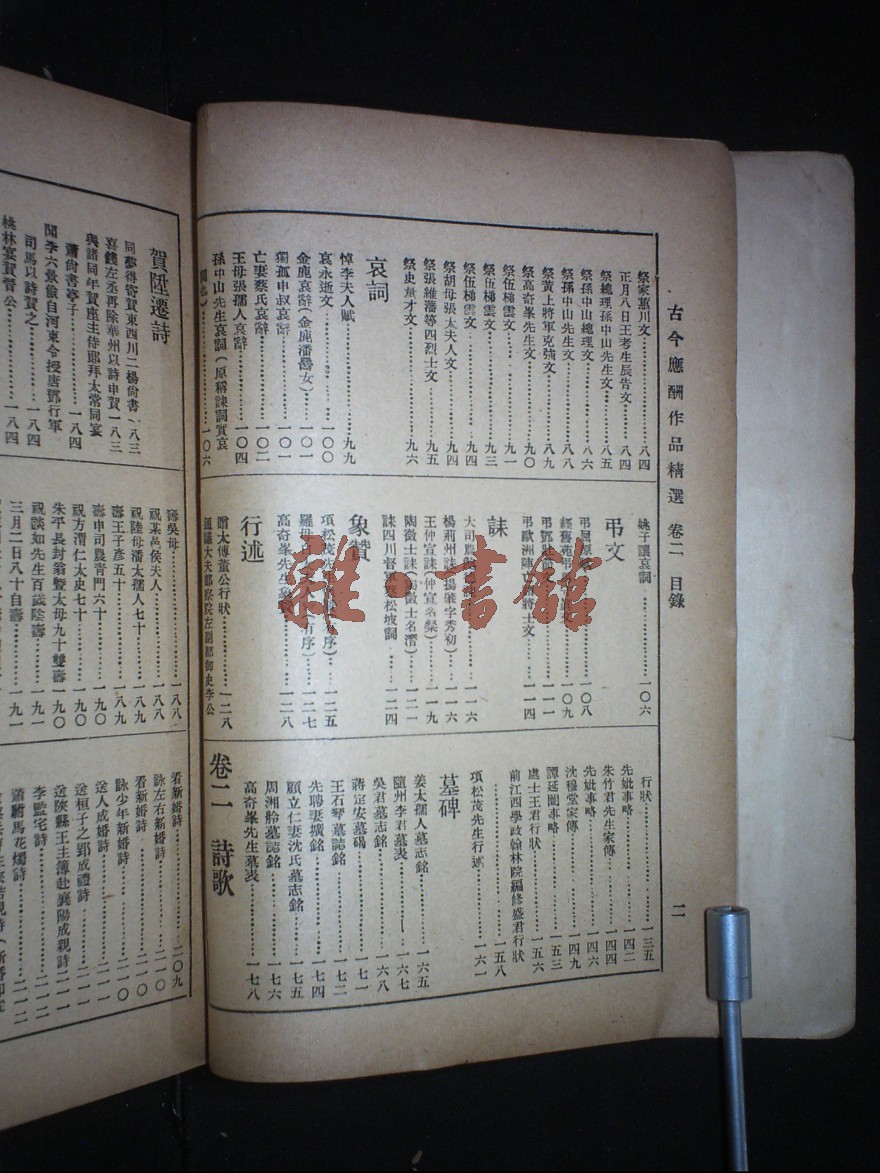 古今應酬作品精選 卷二 目錄
二
祭家蕙川文……八四
正月八日王考生辰告文……八四
祭總理孫中山先生文……八五
祭孫中山總理文……八六
祭孫中山先生文……八八
祭黃上將軍克強文……八九
祭高奇峯先生文……九〇
祭伍梯雲文……九一
祭伍梯雲文……九三
祭伍梯雲文……九四
祭胡母張太夫人文……九四
祭張維藩等四烈士文……九五
祭史量才文……九六
哀詞
悼李夫人賦……九九
哀永逝文……一〇〇
金鹿哀辭(金鹿潘醫女)……一〇一
獨孤申叔哀辭……一〇一
亡妻蔡氏哀辭……一〇二
王母張孺人哀辭……一〇四
孫中山先生哀詞(原稱誄詞實哀
……一〇六
姚子讓哀詞……一〇六
弔文
弔屈原……一〇八
一〇九
弔……一一一
弔歐洲陣亡將士文……一一四
誄
大司農……一一六
楊荊州誄(楊肇字秀初)……一一六
王仲宣誄(仲宣名粲)……一一九
陶徵士誄(徵士名潛)……一二一
誄四川督軍松坡詞……一二四
象贊
項松茂先生……序)……一二五
羅母……人(有序)……一二七
高奇峯先生象贊……一二八
行述
贈太傅董公行狀……一二八
通議大夫都察院左副都御史李公
行狀……一三五
先妣事略……一四二
朱竹君先生家傳……一四四
先妣事略……一四六
沈穆堂家傳……一四九
譚延闓事略……一五三
處士王君行狀……一五六
前江西學政翰林院編修盛君行狀
……一五八
項松茂先生行述……一六一
墓碑
姜太孺人墓志銘……一六五
隨州李君墓表……一六七
吳君墓志銘……一六八
蔣定安墓碣……一七一
王石琴墓誌銘……一七二
先聘妻壙銘……一七四
顧立仁妻沈氏墓志銘……一七五
周湘舲墓誌銘……一七六
高奇峯先生墓表……一七八
卷二 詩歌
賀陞遷詩
同夢得寄賀東西川二楊尙書一八三
喜錢左丞再除華州以詩申賀一八三
與諸同年賀座主侍郎拜太常同宴
蕭尙書亭子……一八四
聞李六景儉自河東令授唐鄧行軍
司馬以詩賀之……一八四
桃林宴賀晉公……一八四
壽吳母……一八八
祝某邑侯夫人……一八八
祝陸母潘太孺人七十……一八九
壽王子彥五十……一八九
壽申司農靑門六十……一九〇
祝方渭仁太史七十……一九〇
朱平長封翁暨太母九十雙壽
……一九〇
祝談如先生百歲陰壽……一九一
三月二日八十自壽……一九一
看新婚詩……二〇九
詠左右新婚詩……二一〇
看新婚詩……二一〇
詠少年新婚詩……二一〇
送人成婚詩……二一一
送桓子之郢成禮詩……二一一
送陝縣王主簿赴襄陽成親詩二一一
李監宅詩……二一二
蕭駙馬花燭詩……二一二
雜·書舘